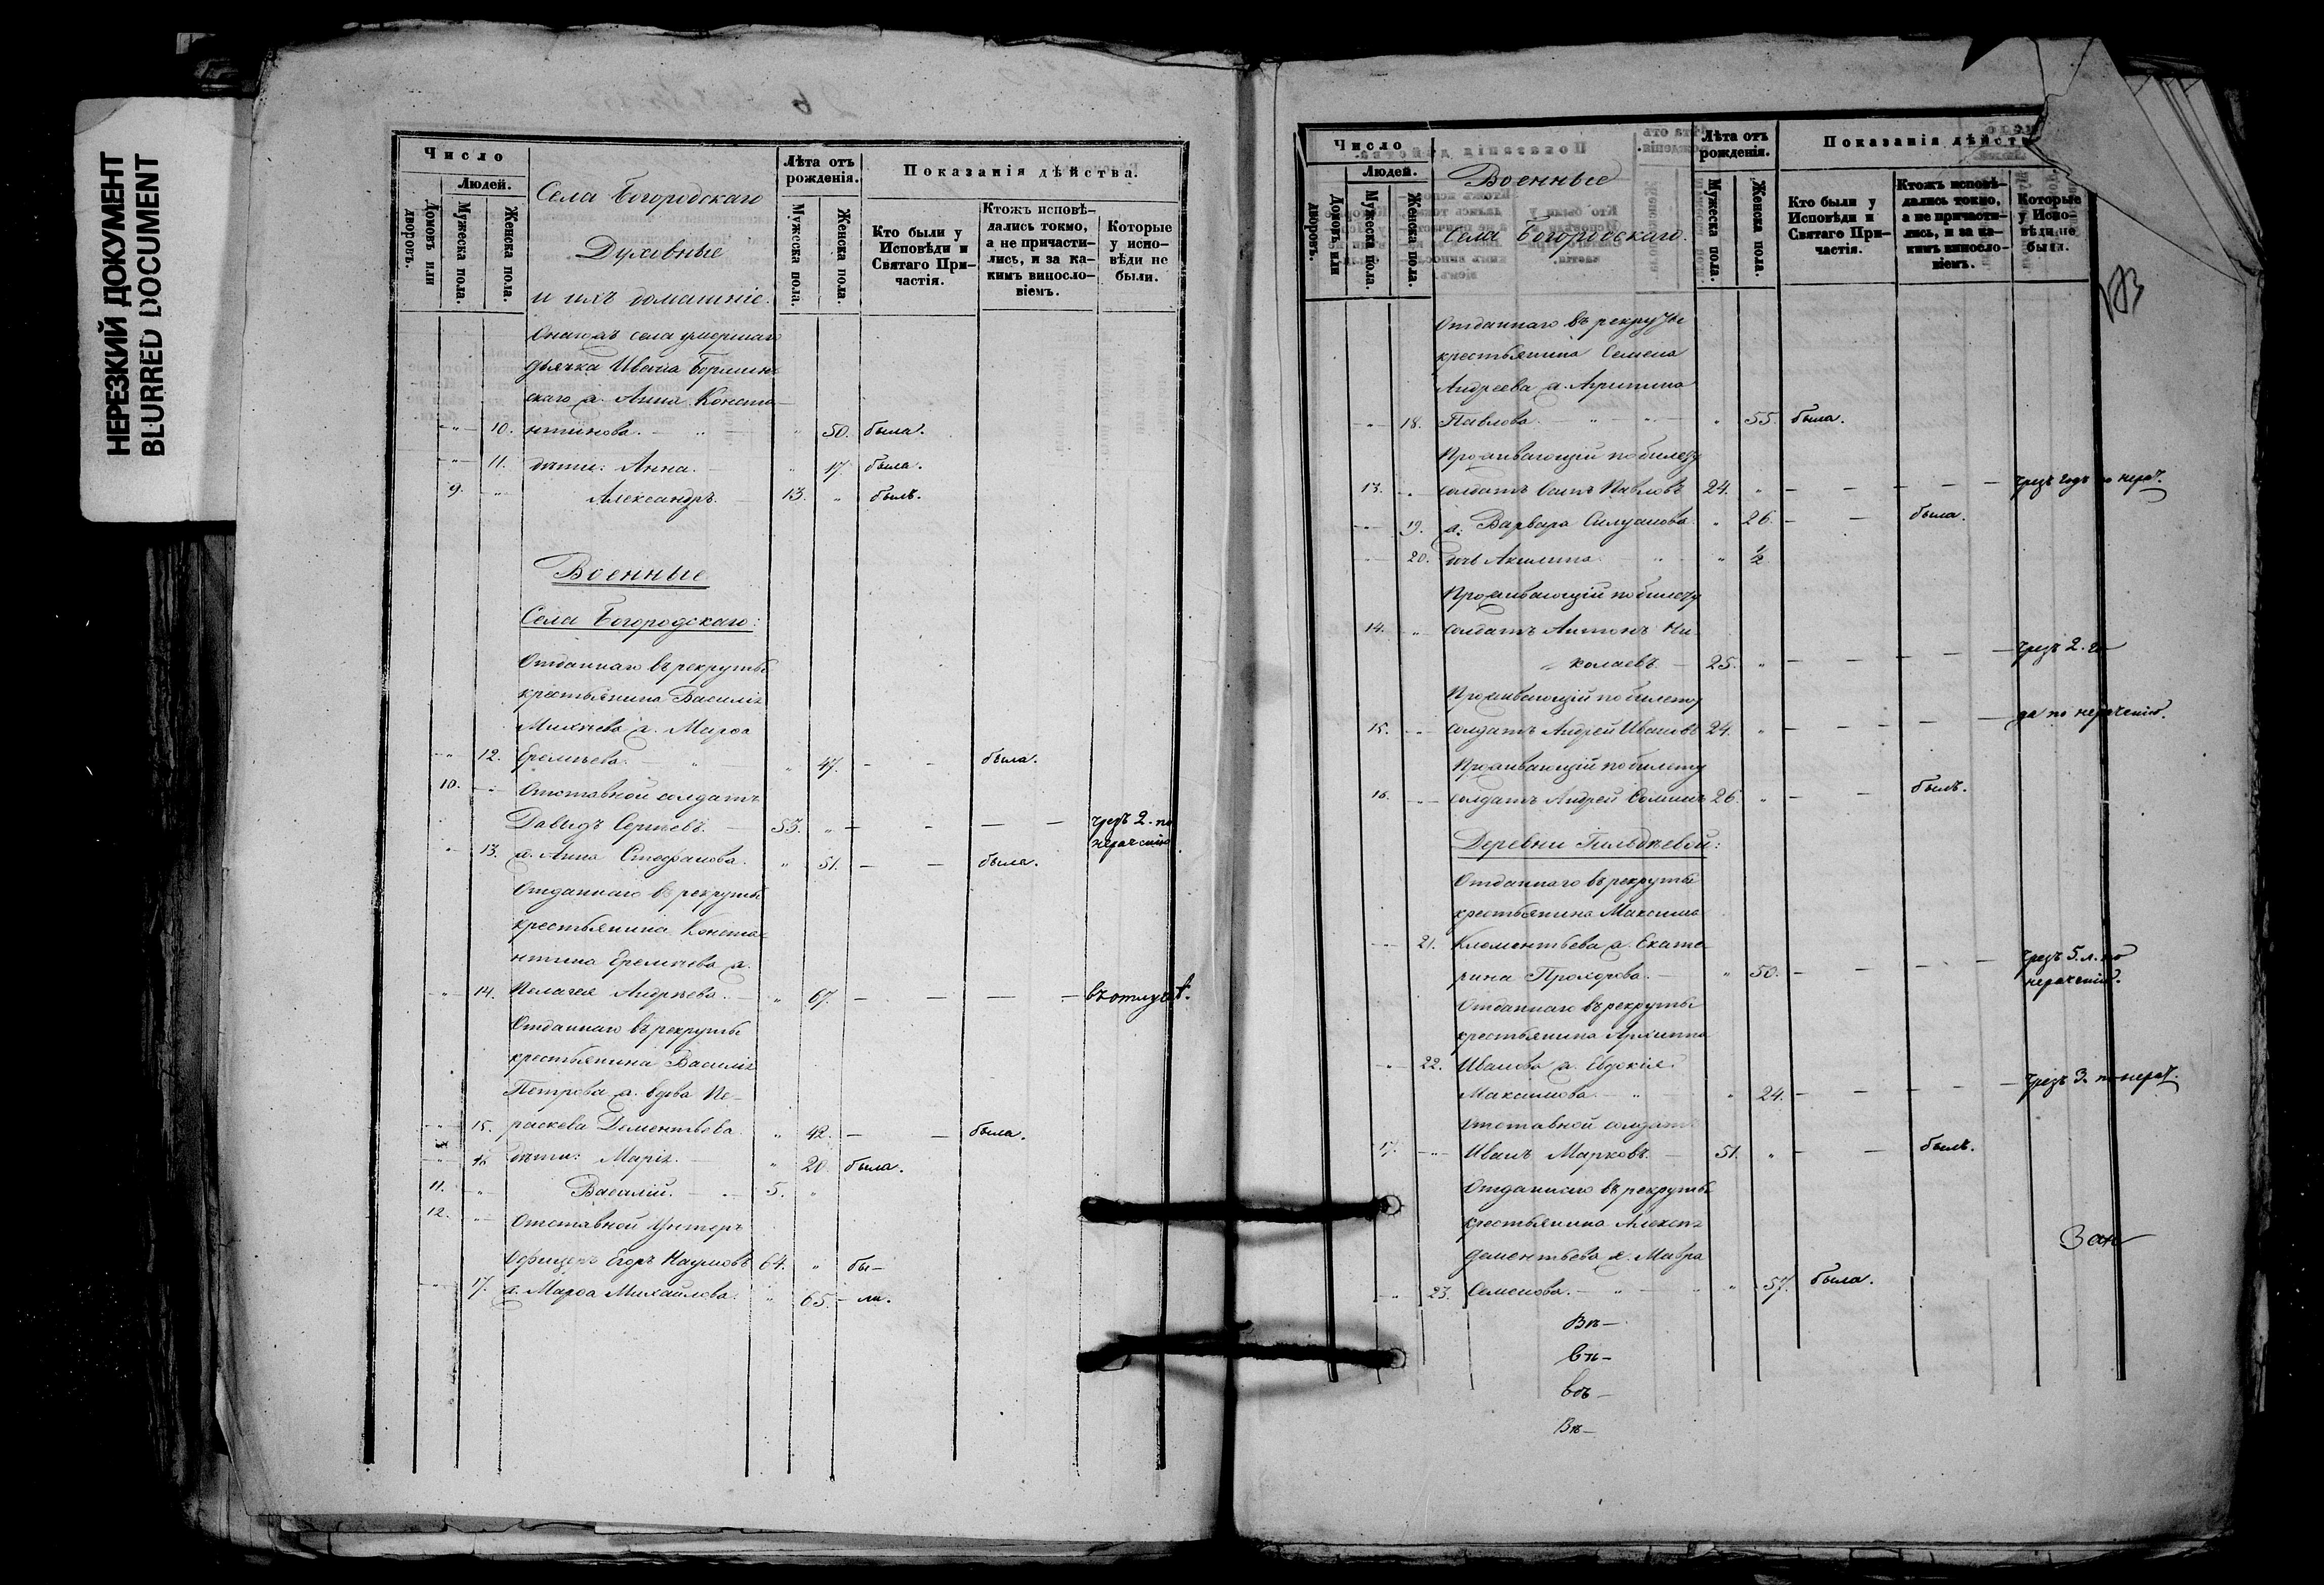 НЕРЕЗКИЙ ДОКУМЕНТ
BLURRED DOCUMENT
Число
Людей.
Домовъ или дворовъ.
Мужеска пола.
Женска пола.
Села Богородскаго
Духовные
и ихъ домашніе.
Лѣта отъ рожденія.
Мужеска пола.
Женска пола.
Показанія дѣйства.
Кто были у Исповѣди и Святаго Причастія.
Ктожъ исповѣдались токмо, а не причастились, и за какимъ винословіемъ.
Которые у исповѣди не были.
села умершаго
дьячка Ивана
скаго ж. Анна Конста-
10. нтинова. 50. была.
11. дѣти: Анна. 17. была.
9. Александръ. 13. былъ.
Военные
Села Богородскаго:
Отданнаго въ рекруты
крестьянина Василія
Михѣева ж. Марѳа
12. Еремѣева. 47. была.
10. Отставной солдатъ
Давыдъ Сергѣевъ. 53. чрезъ 2. по
нерачению
13. ж. Анна Стефанова. 51. была.
Отданнаго въ рекруты
крестьянина Конста-
нтина Еремѣева ж.
14. Пелагея Андрѣева. 67. въ отлуч.
Отданнаго въ рекруты
крестьянина Василія
Петрова ж. вдова Па-
15. раскева Дементьева 42. была.
16 дѣти: Марія. 20. была.
11. Василій. 5.
12. Отставной унтеръ
Офицеръ Егоръ Наумовъ 64. бы-
17. ж. Марѳа Михайлова. 65. ли.
Число
Людей.
Домовъ или дворовъ.
Мужеска пола.
Женска пола.
Военные
Села Богородскаго.
Лѣта отъ рожденія.
Мужеска пола.
Женска пола.
Показанія дѣйст
Кто были у Исповѣди и Святаго Причастія.
Ктожъ исповѣдались токмо, а не причастились, и за какимъ винословіемъ.
Которые у Исповѣди не были.
Отданнаго въ рекруты
крестьянина Семена
Андреева ж. Агрипина
18. Павлова 55. была.
Проживающій по билету
13. солдатъ Павловъ 24. чрезъ годъ по нерач.
19. ж. Варвара Силуанова. 26. была.
20. дочь Акилина. 1/2
Проживающій по билету
14. солдатъ Антонъ Ни-
колаевъ 25. чрезъ 2. го-
Проживающій по билету да по нерачению.
15. солдатъ Андрей Ивановъ 24.
Проживающій по билету
16. солдатъ Андрей 26. былъ.
Деревни Гильдѣевой:
Отданнаго въ рекруты
крестьянина Максима
21. Клементьева ж. Екате-
рина Прохорова. 50. чрезъ 5. л. по
нерачению.
Отданнаго въ рекруты
крестьянина Архиппа
22. Иванова ж. Евдокія
Максимова. 24. чрезъ 3. по нерач.
Отставной солдатъ
17. Иванъ Марковъ. 51. былъ.
Отданнаго въ рекруты
крестьянина Алексѣя
Дементьева ж. Мавра
23. Семенова. 57. была.